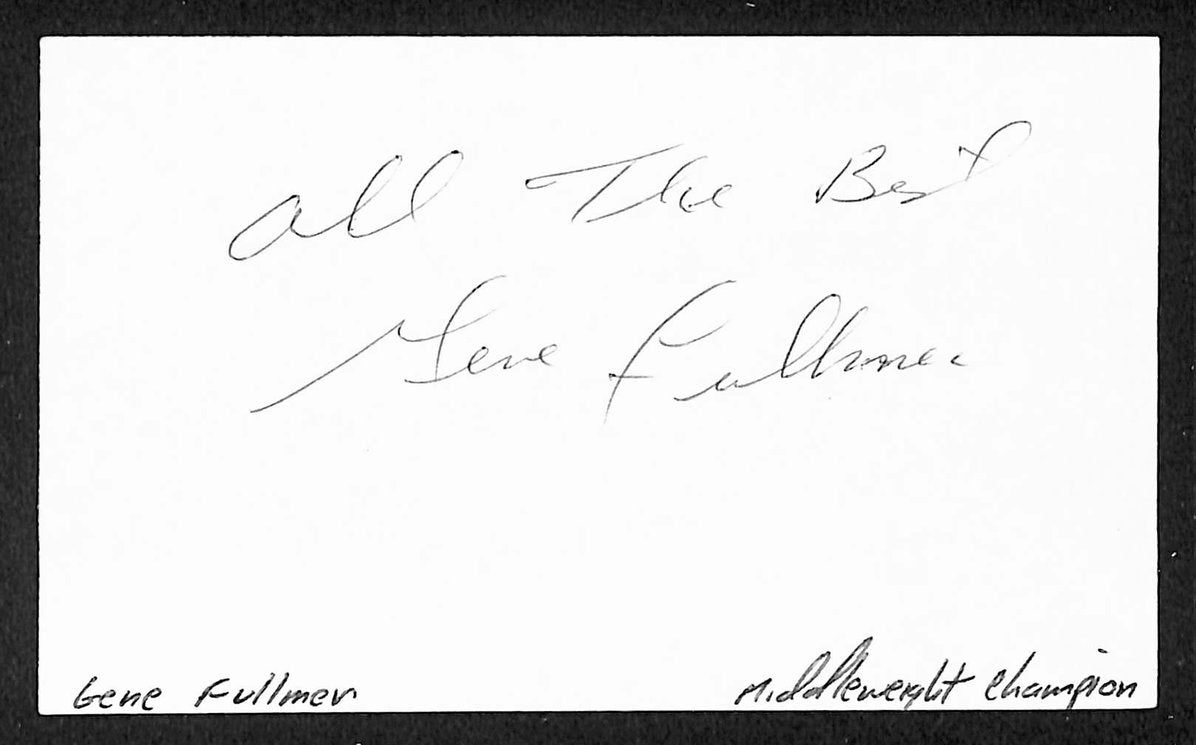 All The Best
Gene Fullmer
Gene Fullmer Middleweight Champion